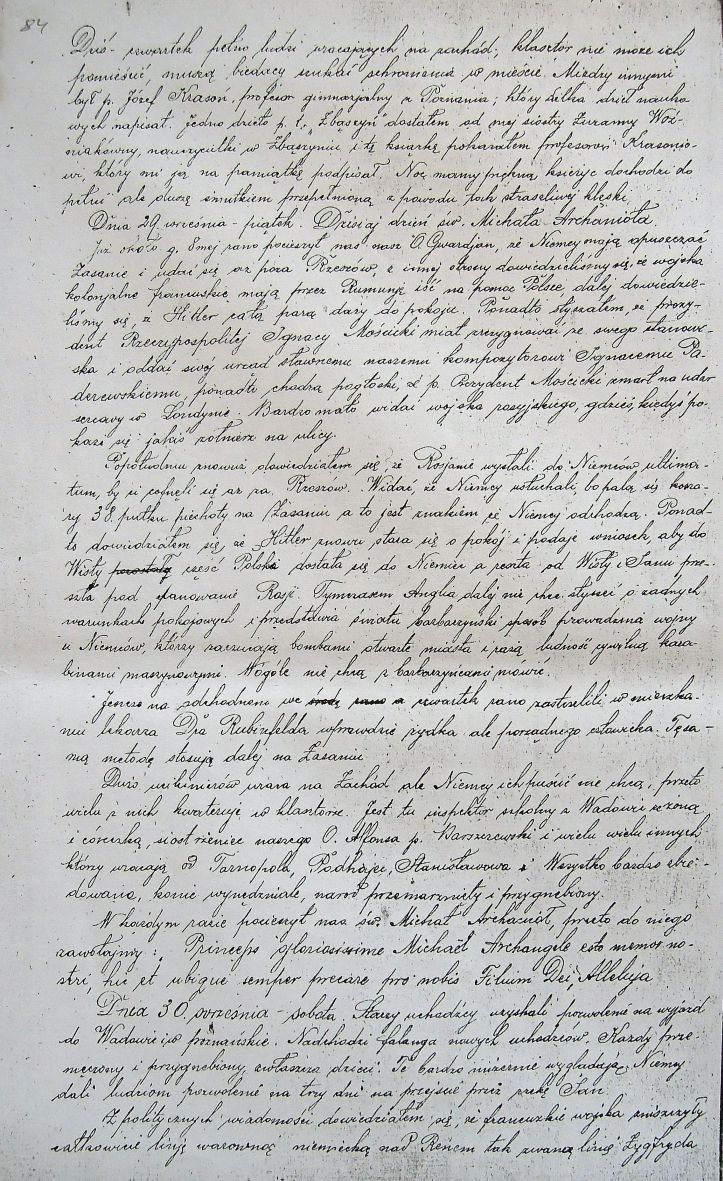 84
Dziś - czwartek pełno ludzi wracających na zachód, klasztor nie może ich
pomieścić, muszą biedacy szukać schronienia w mieście. Między innymi
był p. Józef Krasoń, profesor gimnazjalny z Poznania, który kilka dzieł nauko
wych napisał. Jedno dzieło p. t. „Zbąszyń" dostałem od mej siostry Zuzanny Woź-
niakówny, nauczycielki w Zbąszyniu i tę książkę pokazałem profesorowi Krasonio-
wi, który mi ją na pamiątkę podpisał. Noc mamy piękną, księżyc dochodzi do
pełni ale duszę smutkiem przepełnioną z powodu tak straszliwej klęski.
Dnia 29. września - piątek. Dzisiaj dzień św. Michała Archanioła.
Już około g. 8mej rano pocieszył nas nasz O. Gwardjan, że Niemcy mają opuszczać
Zasanie i udać się aż poza Rzeszów, z innej strony dowiedzieliśmy się, że wojska
kolonjalne francuskie mają przez Rumunję iść na pomoc Polsce dalej dowiedzie-
liśmy się, że Hitler całą parą dąży do pokoju. Ponadto słyszałem, że prezy-
dent Rzeczypospolitej Ignacy Mościcki miał zrezygnować ze swego stanowi-
ska i oddać swój urząd sławnemu naszemu kompozytorowi Ignacemu Pa-
derewskiemu, ponadto chodzą pogłoski, że p. Prezydent Mościcki zmarł na udar
sercowy w Londynie. Bardzo mało widać wojska rosyjskiego, gdzieś kiedyś po-
każe się jakiś żołnierz na ulicy.
Popołudniu znowuż dowiedziałem się, że Rosjanie wysłali do Niemców ultima-
tum, by ci cofnęli się aż za Rzeszów. Widać, że Niemcy usłuchali, bo palą się kosza-
ry 38. pułku piechoty na Zasaniu a to jest znakiem że Niemcy odchodzą. Ponad-
to dowiedziałem się, że Hitler znowu stara się o pokój i podaje wniosek, aby do
Wisły pozostałą część Polski dostała się do Niemiec a reszta od Wisły i Sanu prze-
szła pod panowanie Rosji. Tymczasem Anglia dalej nie chce słyszeć o żadnych
warunkach pokojowych i przedstawia światu barbarzyński sposób prowadzenia wojny
u Niemców, którzy zarzucają bombami otwarte miasta i rażą ludność cywilną kara-
binami maszynowymi. Wogóle nie chcą z barbarzyńcami mówić.
Jeszcze na odchodnem we środę rano a czwartek rano zastrzelili w mieszka-
niu lekarza Dra Rubinfelda wprawdzie żydka ale porządnego człowieka. Tę sa-
mą metodę stosują dalej na Zasaniu.
Dużo uciekinierów wraca na Zachód ale Niemcy ich puścić nie chcą, przeto
wielu z nich kwateruje w klasztorze. Jest tu inspektor szkolny z Wadowic z żoną
i córeczką, siostrzeniec naszego O. Alfonsa p. Warszewski i wielu wielu innych
którzy wracają od Tarnopola, Podhajec, Stanisławowa i Wszystko bardzo zbie-
dowane, konie wynędzniałe, naród przemarznięty i przygnębiony.
W każdym razie pocieszył nas św. Michał Archanioł, przeto do niego
zawołajmy: „Princeps gloriosissime Michaël Archangele esto memor no-
stri, hic et ubique semper precare pro nobis Filium Dei, Alleluja
Dnia 30. września - sobota. Starzy uchodźcy uzyskali pozwolenie na wyjazd
do Wadowic i w poznańskie. Nadchodzi falanga nowych uchodźców. Każdy prze-
męczony i przygnębiony, zwłaszcza dzieci. Te bardzo mizernie wyglądają. Niemcy
dali ludziom pozwolenie na trzy dni na przejście przez rzekę San.
Z politycznych wiadomości dowiedziałem się, że francuzkie wojska zniszczyły
całkowicie linję warowną niemiecką nad Renem tak zwaną linię Zygfryda